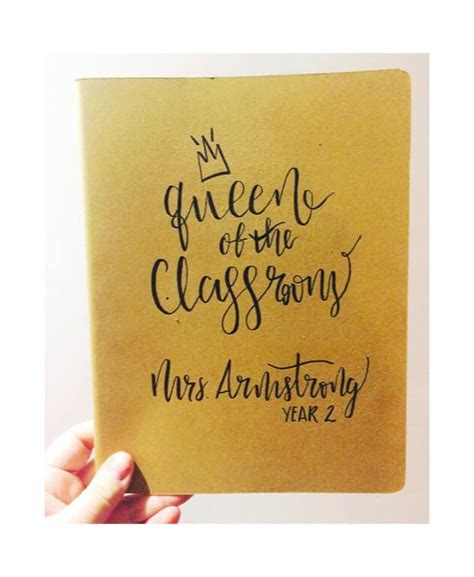 queen
of the
Classroom
Mrs. Armstrong
YEAR 2